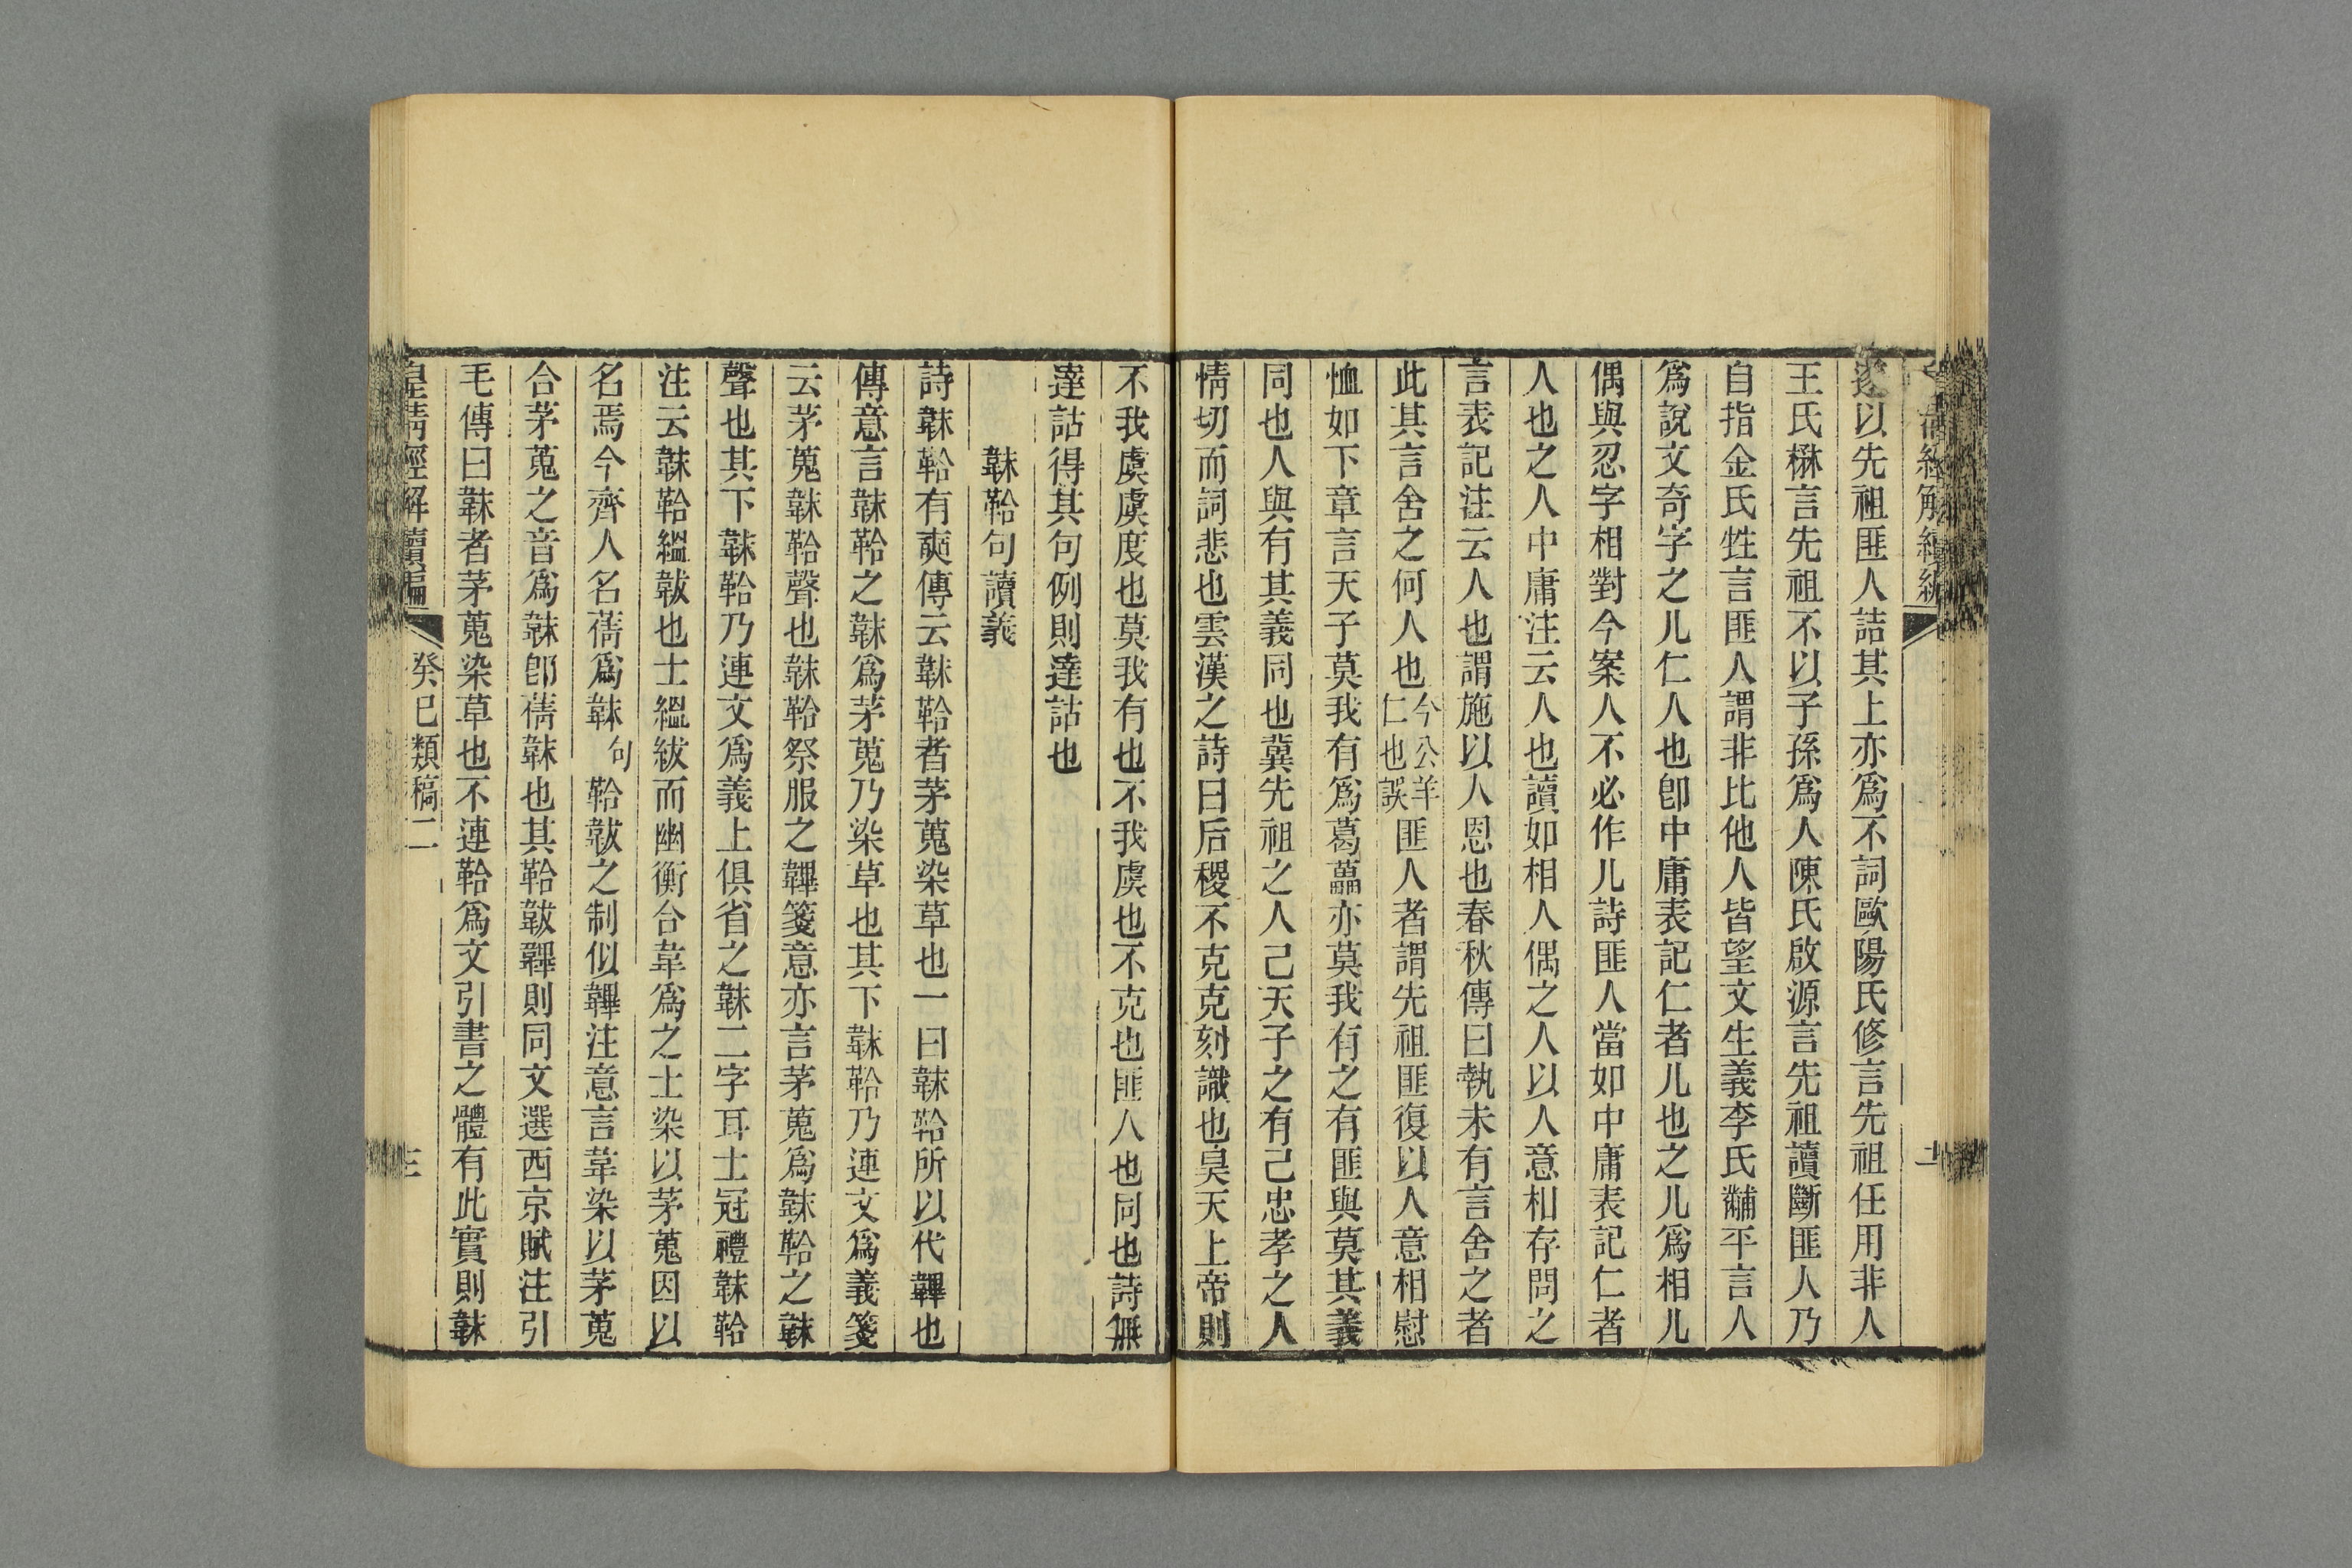 清經解續編
遂以先祖匪人詰其上亦爲不詞歐陽氏修言先祖任用非人
王氏楙言先祖不以子孫爲人陳氏啟源言先祖讀斷匪人乃
自指金氏甡言匪人謂非比他人皆望文生義李氏黼平言人
爲說文奇字之儿仁人也卽中庸表記仁者儿也之儿爲相儿
偶與忍字相對今案人不必作儿詩匪人當如中庸表記仁者
人也之人中庸注云人也讀如相人偶之人以人意相存問之
言表記注云人也謂施以人恩也春秋傳曰執未有言舍之者
此其言舍之何人也今公羊仁也誤匪人者謂先祖匪復以人意相慰
恤如下章言天子莫我有爲葛藟亦莫我有之有匪與莫其義
同也人與有其義同也冀先祖之人己天子之有己忠孝之人
情切而詞悲也雲漢之詩曰后稷不克克刻識也昊天上帝則
不我虞虞度也莫我有也不我虞也不克也匪人也同也詩無
達詁得其句例則達詁也
韎韐句讀義
詩韎韐有奭傳云韎韐者茅蒐染草也一曰韎韐所以代韠也
傳意言韎韐之韎爲茅蒐乃染草也其下韎韐乃連文爲義箋
云茅蒐韎韐聲也韎韐祭服之韠箋意亦言茅蒐爲韎韐之韎
聲也其下韎韐乃連文爲義上俱省之韎二字耳士冠禮韎韐
注云韎韐縕韍也士縕紱而幽衡合韋爲之士染以茅蒐因以
名焉今齊人名蒨爲韎句韐韍之制似韠注意言韋染以茅蒐
合茅蒐之音爲韎卽蒨韎也其韐韍韠則同文選西京賦注引
毛傳曰韎者茅蒐染草也不連韐爲文引書之體有此實則韎
皇清經解續編 癸巳類稿二 三